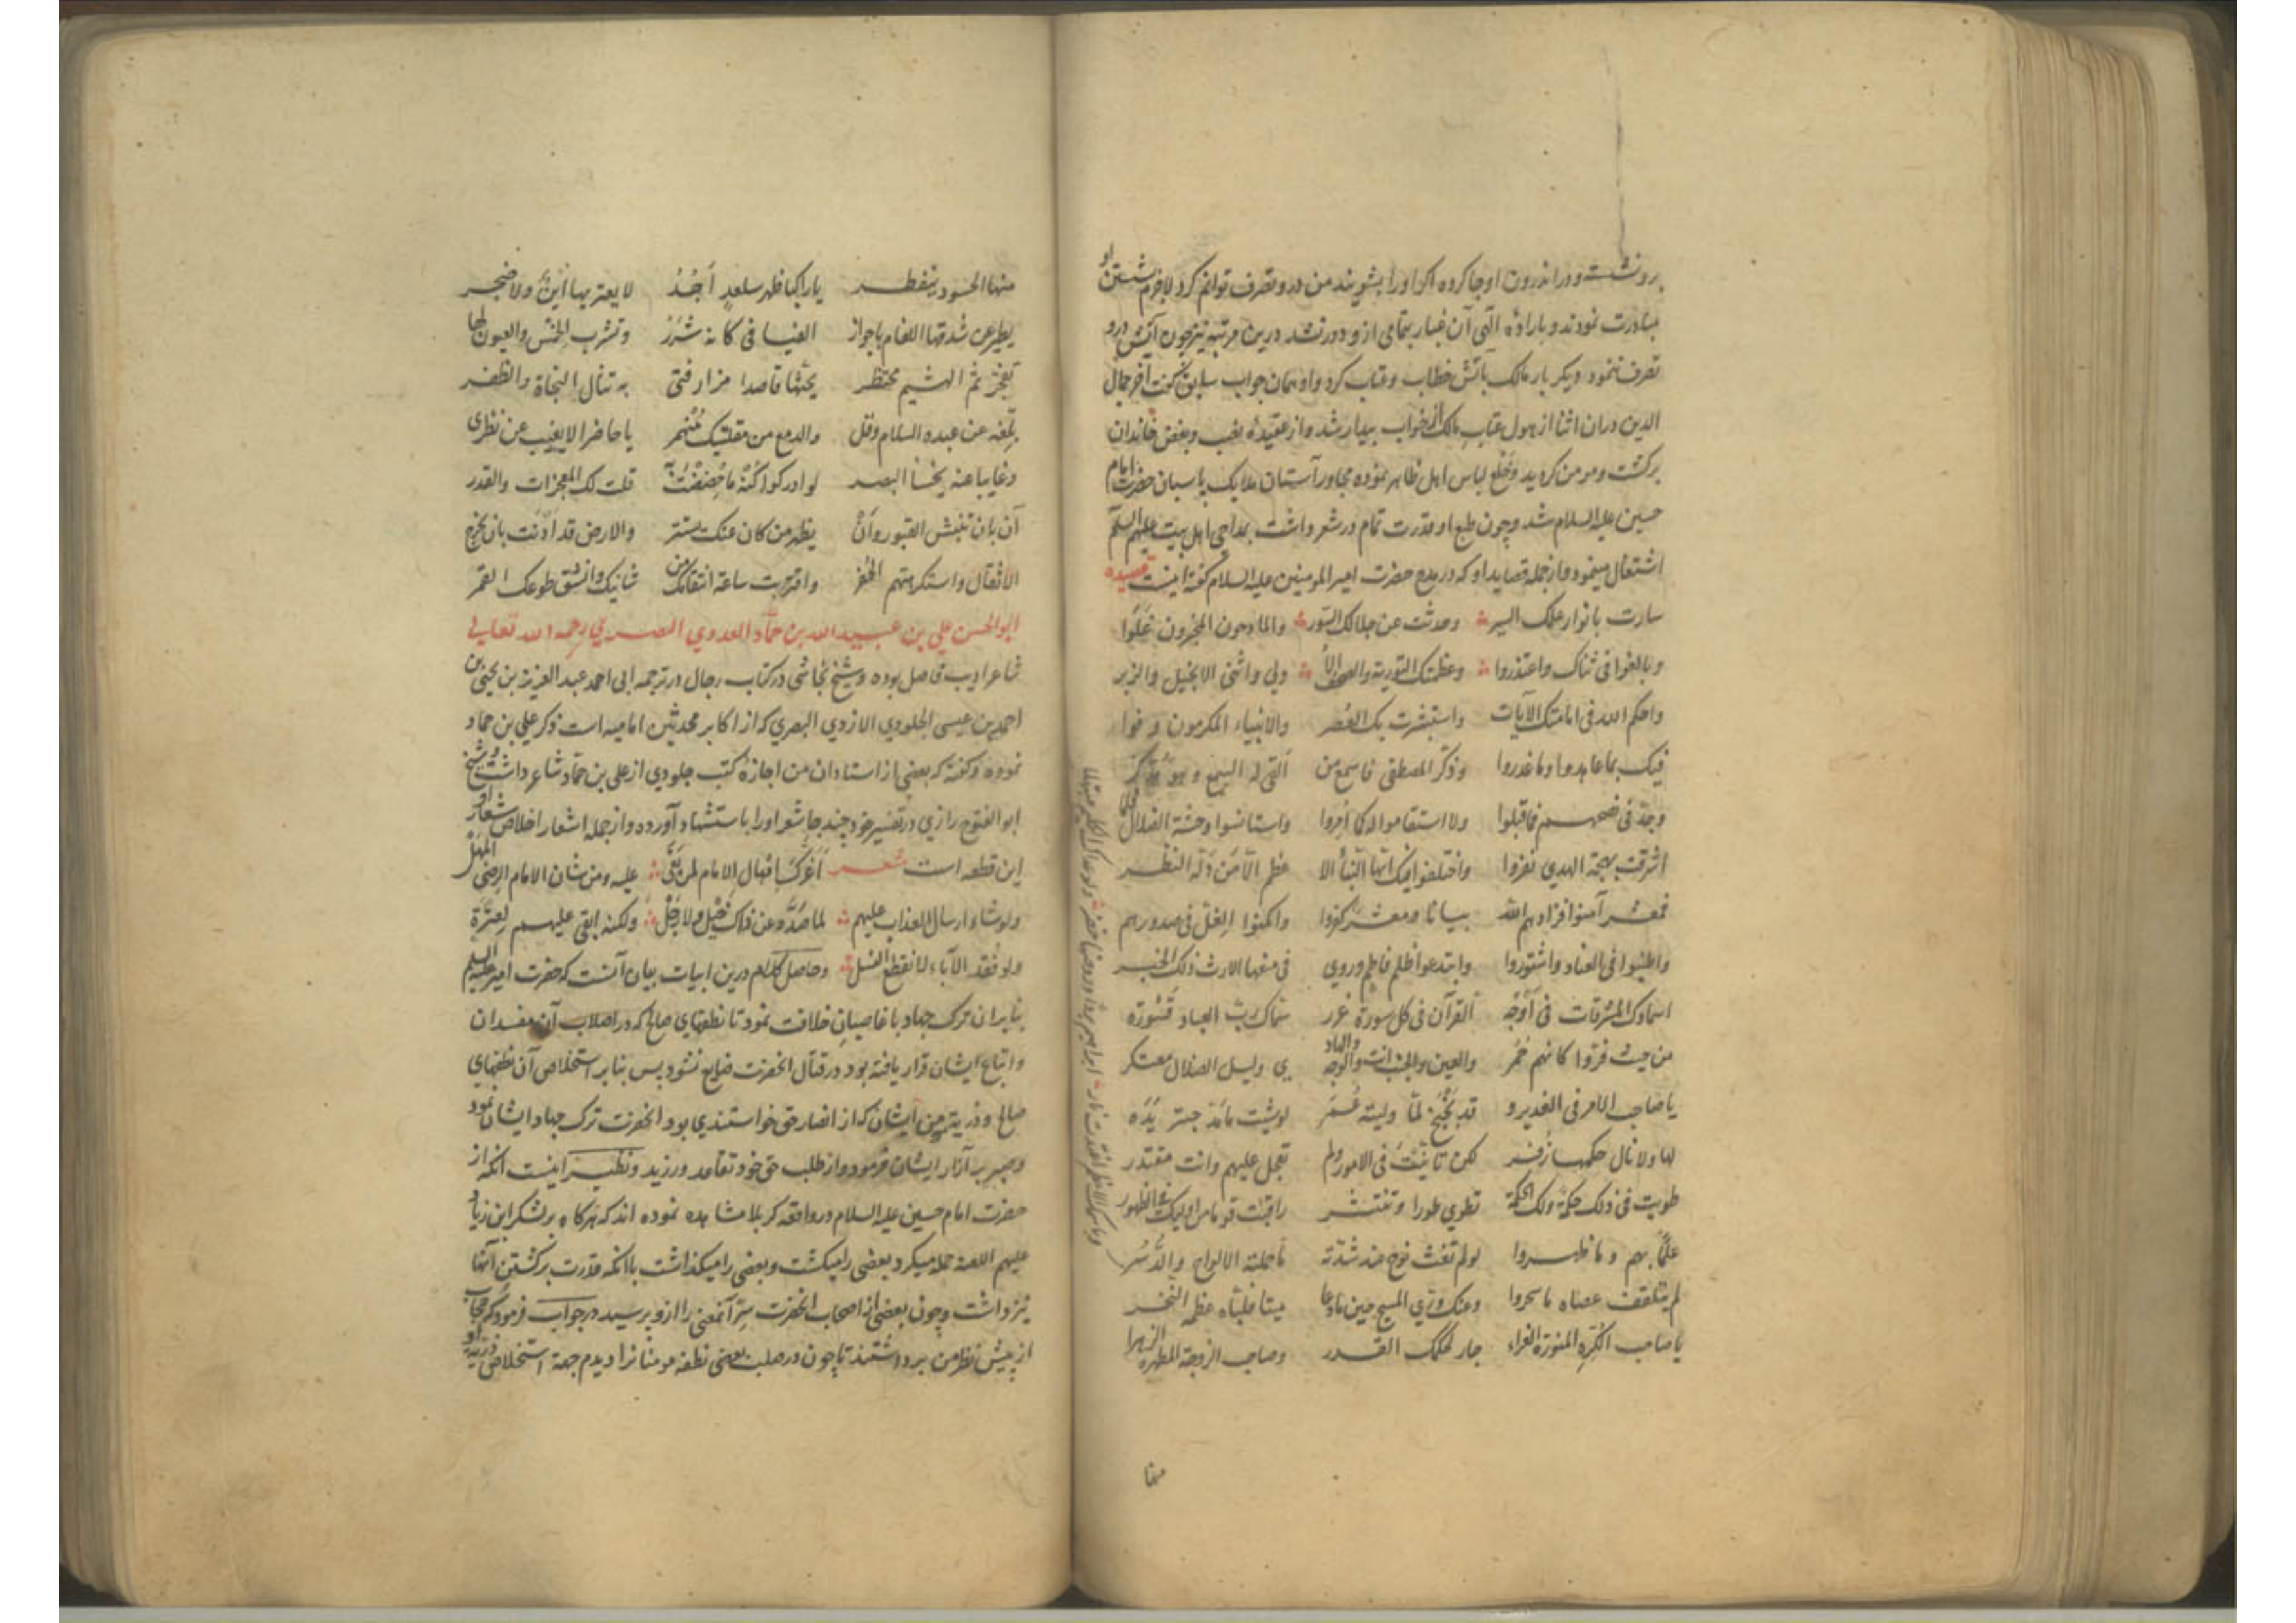 برو نشست و در اندرون او جا کرده اکر او را بشویند من در و تصرف توانم کرد لاجرم شستن او
مبادرت نمودند و باراده الهی آن غبار بتمامی از و دور نشد درین مرتبه نیز چون آتش درو
تصرف ننمود دیکر بار مالک باتش خطاب و عتاب کرد و او همان جواب سابق گفت آخر جمال
الدین دران اثنا از هول عتاب مالک از خواب بیدار شد و از عقیده نصب و بغض خاندان
برکشت و مومن کردید و خلع لباس اهل ظاهر نموده مجاور آستان ملایک پاسبان حضرت امام
حسین علیه السلام شد و چون طبع او قدرت تمام در شعر داشت بمداحی اهل بیت علیهم السلام
اشتغال مینمود و از جمله قصاید او که در مدح حضرت امیر المومنین علیه السلام کفته اینست قصیده
سارت بانوار علمک السیر وحدثت عن جلالک السور والمادحون المخبرون غلوا
وبالغوا فی ثناک واعتذروا وعظمتک التوریة والصحف الأ ولی واثنی الانجیل والزبر
واحکم الله فی امامتک الآیات واستبشرت بک العصر والانبیاء المکرمون وفوا
فیک بما عاهدوا وما غدروا وذکر المصطفی فاسمع من القی له السمع وهو مدکر
وجد فی نصحهم فما قبلوا ولا استقاموا له کما أمروا واستانسوا وحشة الضلال
اشرقت بهجة الهدی نفروا واختلفوا فیک ایها النبأ الا عظم الا من دله النظر
فمعشر آمنوا فزادهم الله بیانا ومعشر کفروا واکمنوا الغل فی صدورهم
واطنبوا فی العناد واشتوروا وابتدعوا ظلم فاطم وروی فی منعها الارث ذلک الخبر
اسماوک المشرقات فی اوجه القرآن فی کل سورة غرر سماک رب العباد قسورة
من حیث فروا کانهم حمر والعین والجنب انت والوجه والهاد ی ولیل الضلال معتکر
یا صاحب الامر فی الغدیر و قد بخبخ لما ولیته عمر لو شئت ما مد حبتر یده
لها ولا نال حکمها زفر لکن تأنیت فی الامور ولم تعجل علیهم وانت مقتدر
طویت فی ذلک حکمة ولک الحکمة تطوی طورا وتنتشر
علما بهم وما ظهروا لو لم تغث نوح عند شدته ما حملته الالواح والدسر
لم یتلقف عصاه ما سحروا وعنک روی المسیح حین دعا میتا فلباه عظمه النخر
یا صاحب الکره المنورة الغراء جار لحکمک القدر وصاحب الزوجة المطهره الزهرا
منها
منها الحسود ینفطر یا راکبا ظهر سلعد أجد لا یعتریها أین ولا ضجر
یطیر عن شدقها اللغام باجواز الفیافی کانه شرر
ثم الهشیم محتظر یحثها قاصدا مزار فتی به تنال النجاة والظفر
بلغه عن عبده السلام وقل والدمع من مقلتیک منهمر یا حاضرا لا یغیب عن نظری
وغایبا عنه یخسأ البصر لو ادرکوا کنه ما خصصت به قلت لک المعجزات والقدر
آن بان تنبش القبور وان یظهر من کان عنک یستتر والارض قد اذنت بان یخرج
الاثقال واستکرهتهم الحفر واقتربت ساعة انتقامک من شانیک وانشق طوعک القمر
ابو الحسن علی بن عبید الله بن حماد العدوي البصري رحمه الله تعالی
شاعر ادیب فاضل بوده و شیخ نجاشی در کتاب رجال در ترجمه ابی احمد عبد العزیز بن یحیی بن
احمد بن عیسی الجلودي الازدي البصري که از اکابر محدثین امامیه است ذکر علی بن حماد
نموده و کفته که بعضی از استادان من اجازه کتب جلودي از علی بن حماد شاعر داشت و شیخ
ابو الفتوح رازي در تفسیر خود چند جا شعر او را باستشهاد آورده و از جمله اشعار اخلاص شعار او
این قطعه است شعر أغرک إمهال الامام لمن بغی علیه ومن شان الامام الرضی المهل
ولو شاء ارسال العذاب علیهم لما صده عن ذاک خیل ولا رجل ولکنه ابقی علیهم لعترة
ولو فقد الآباء لانقطع النسل و حاصل کلام درین ابیات بیان آنست که حضرت امیر علیه السلم
بنابران ترک جهاد با غاصبان خلافت نمود تا نطفهای صالح که در اصلاب آن مفسدان
و اتباع ایشان قرار یافته بود در قتال انحضرت ضایع نشود پس بنابر استخلاص آن نطفهای
صالح و ذریتی من ایشان که از انصار حق خواستندي بود انحضرت ترک جهاد ایشان نمود
و صبر بر آزار ایشان فرمود و از طلب حق خود تقاعد ورزید و نظیر اینست انکه از
حضرت امام حسین علیه السلام در واقعه کربلا مشاهده نموده اند که هرکاه بر لشکر ابن زیاد
علیهم اللعنه حمله میکرد بعضی را میکشت و بعضی را میکذاشت با انکه قدرت بر کشتن آنها
نیز داشت و چون بعضی از اصحاب انحضرت سر آنمعنی را ازو پرسید در جواب فرمود که حجاب
از پیش نظر من برداشتند تا چون در صلب بعضی نطفه مومنانرا دیدم جهة استخلاص ذریة او